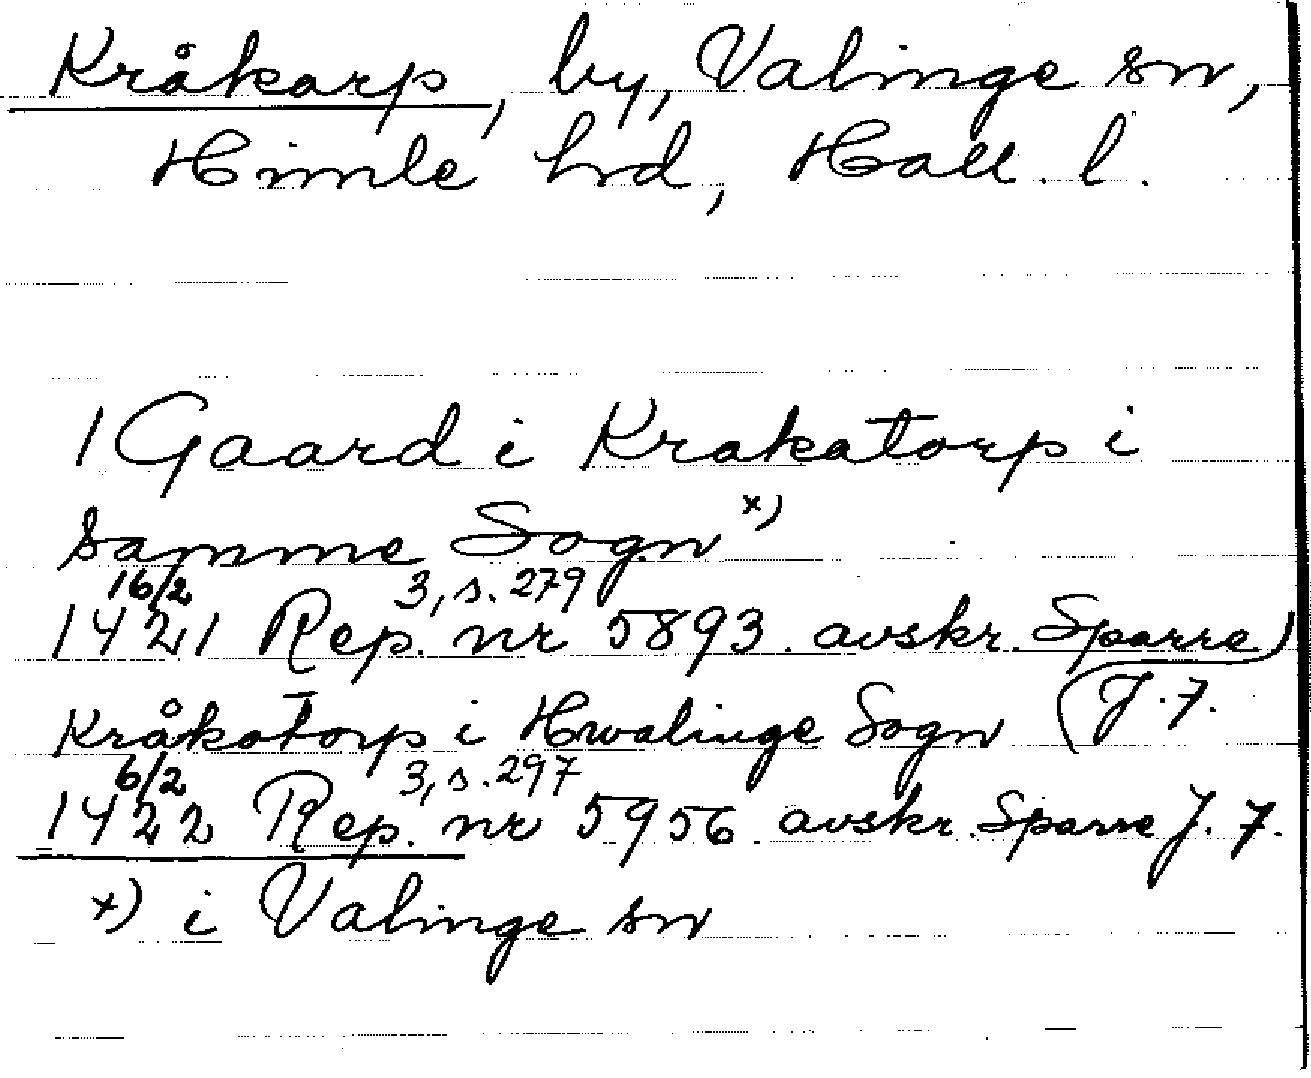 Kråkarp, by, Valinge sn,
Himle hd, Hall. l.
1 Gaard i Krakatorp i
samme Sogn x)
16/2 3, s. 279
1421 Rep. nr 5893. avskr. Sparre
Kråkatorp i Hwalinge Sogn (J. 7.
6/2 3, s. 297
1422 Rep. nr 5956 avskr. Sparre J. 7.
x) i Valinge sn